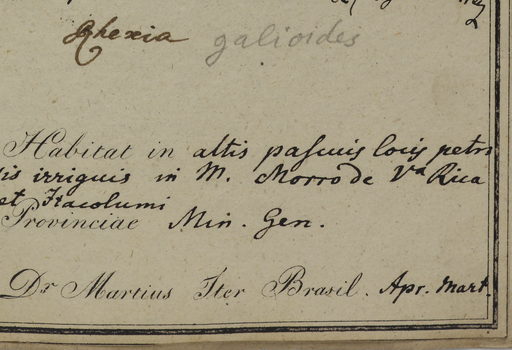 Rhexia galioides
Habitat in altis pascuis locis petro
sis irriguis in M. Morro de Va Rica
et Itacolumi
Provinciae Min. Gen.
Dr Martius Iter Brasil. Apr. Mart.